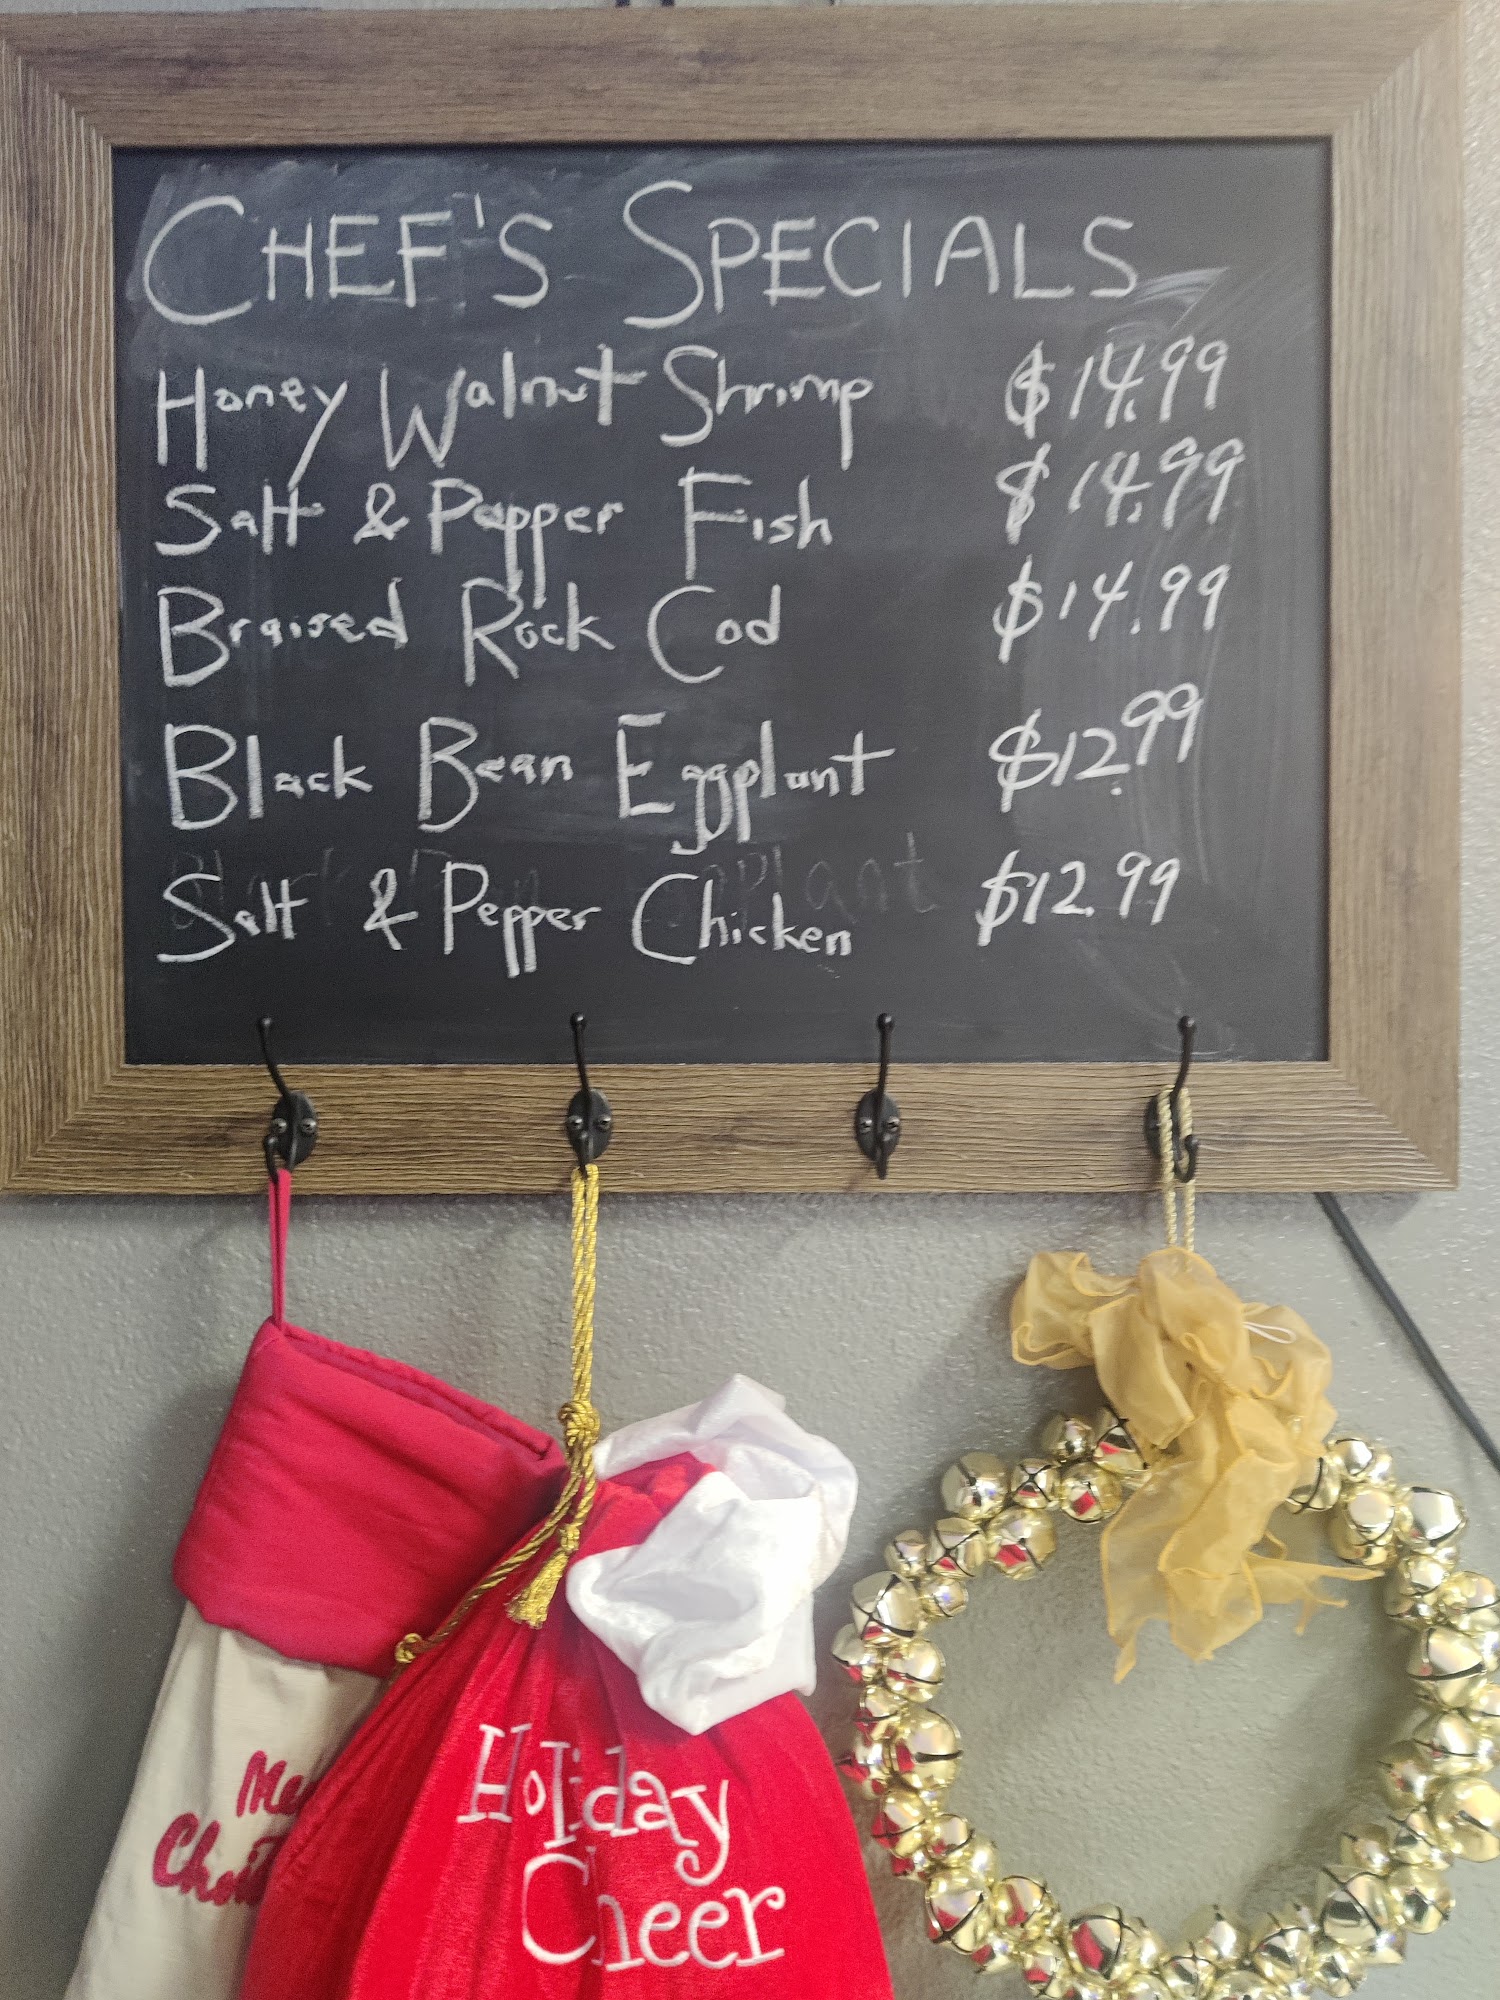 CHEF'S SPECIALS
Honey Walnut Shrimp $14.99
Salt & Pepper Fish $14.99
Braised Rock Cod $14.99
Black Bean Eggplant $12.99
Salt & Pepper Chicken $12.99
Holiday
Cheer